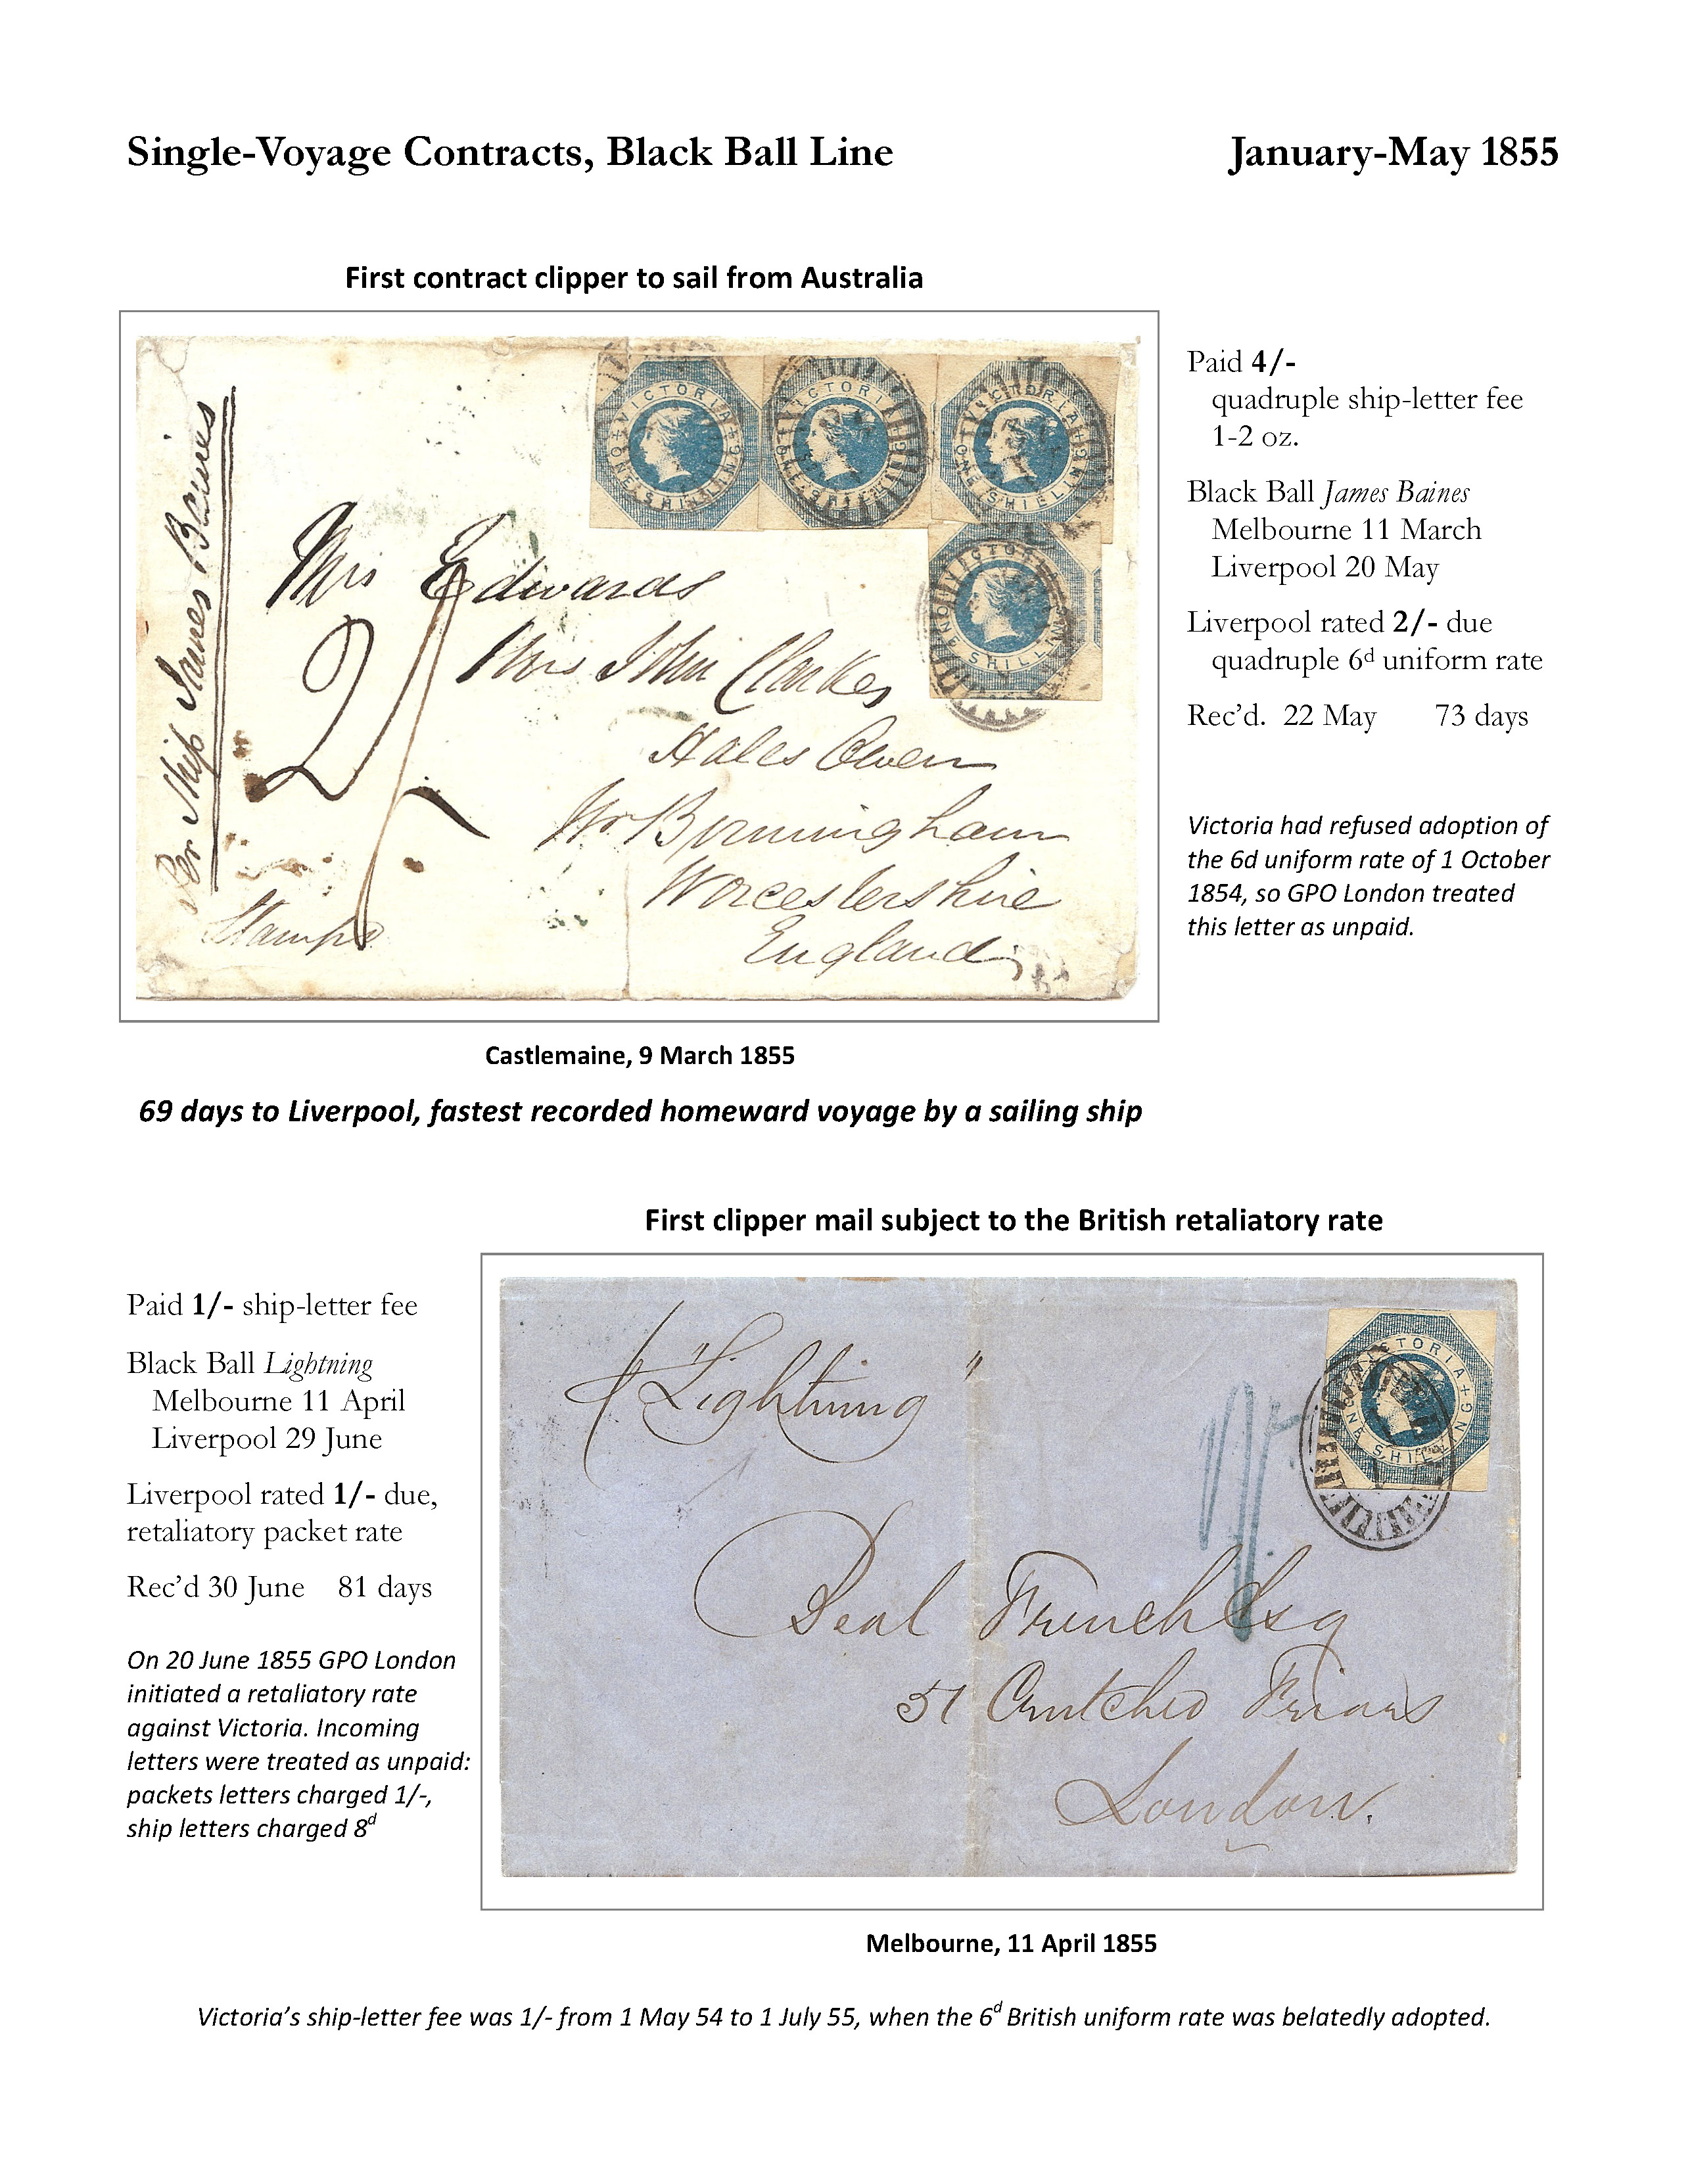 Single-Voyage Contracts, Black Ball Line January-May 1855
First contract clipper to sail from Australia
Per Ship James Baines
VICTORIA
ONE SHILLING
VICTORIA
ONE SHILLING
VICTORIA
ONE SHILLING
VICTORIA
ONE SHILLING
Mrs Edwards
2/-
Mrs John Clarkes
Hales Owen
Nr Birmingham
Worcestershire
England
Stamps
Paid 4/-
quadruple ship-letter fee
1-2 oz.
Black Ball James Baines
Melbourne 11 March
Liverpool 20 May
Liverpool rated 2/- due
quadruple 6d uniform rate
Rec’d. 22 May 73 days
Victoria had refused adoption of
the 6d uniform rate of 1 October
1854, so GPO London treated
this letter as unpaid.
Castlemaine, 9 March 1855
69 days to Liverpool, fastest recorded homeward voyage by a sailing ship
First clipper mail subject to the British retaliatory rate
Paid 1/- ship-letter fee
Black Ball Lightning
Melbourne 11 April
Liverpool 29 June
Liverpool rated 1/- due,
retaliatory packet rate
Rec’d 30 June 81 days
On 20 June 1855 GPO London
initiated a retaliatory rate
against Victoria. Incoming
letters were treated as unpaid:
packets letters charged 1/-,
ship letters charged 8d
"Lightning"
VICTORIA
ONE SHILLING
1/-
Deal French Esq
51 Crutched Friars
London.
Melbourne, 11 April 1855
Victoria’s ship-letter fee was 1/- from 1 May 54 to 1 July 55, when the 6d British uniform rate was belatedly adopted.